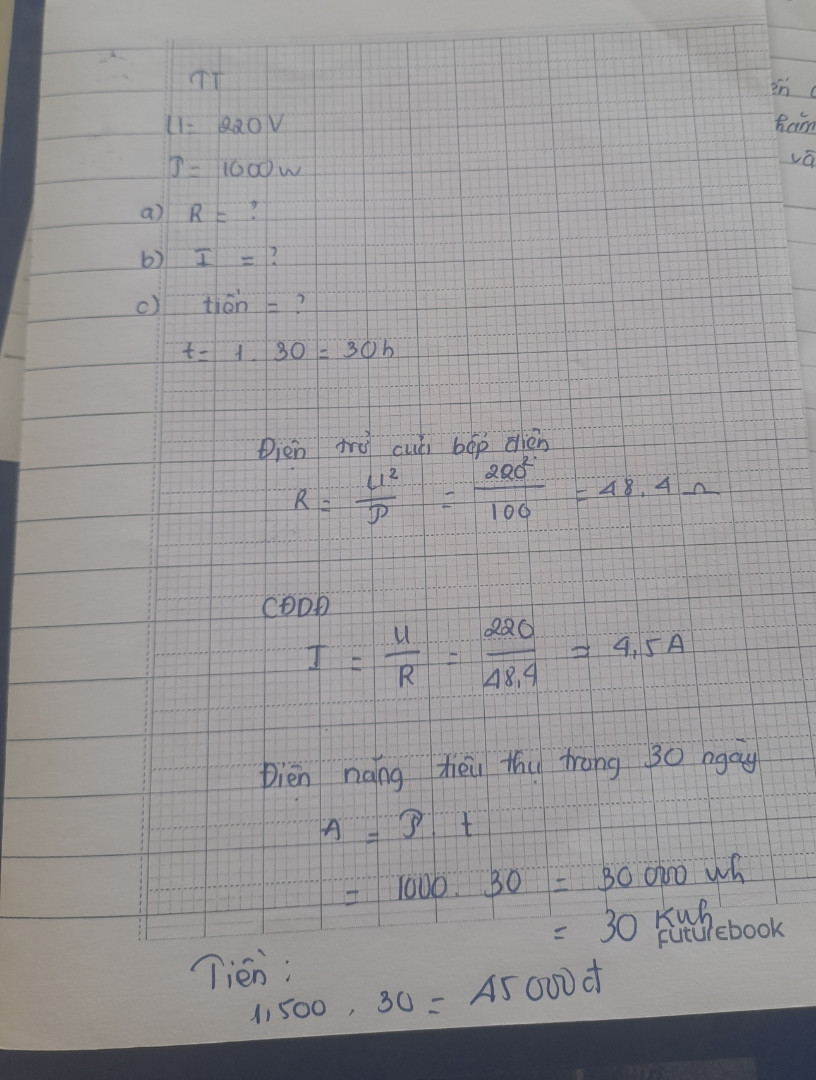 TT
U = 220V
P = 1000w
a) R = ?
b) I = ?
c) tiền = ?
t = 1 . 30 = 30h
Điện trở của bếp điện
R = U²/P = 220²/100 = 48,4 Ω
CĐDĐ
I = U/R = 220/48,4 = 4,5A
Điện năng tiêu thụ trong 30 ngày
A = P . t
= 1000 . 30 = 30 000 wh
= 30 Kwh
FUTUREBOOK
Tiền :
1,500 . 30 = 45 000đ